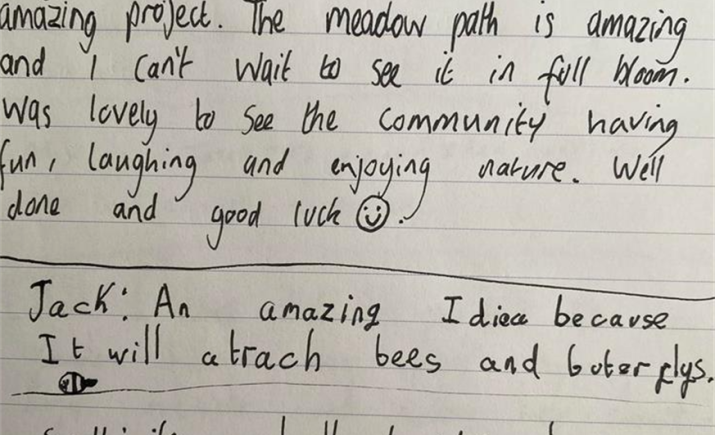 amazing project. The meadow path is amazing
and I can't wait to see it in full bloom.
Was lovely to see the community having
fun, laughing and enjoying nature. Well
done and good luck ☺.
Jack: An amazing Idiea because
It will atrach bees and buterflys.